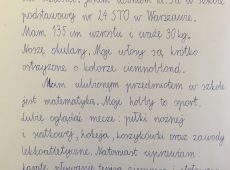 podstawowej nr 24 STO w Warszawie.
Mam 135 cm wzrostu i ważę 30 kg.
Noszę okulary. Moje włosy są krótko
ostrzyżone o kolorze ciemnoblond.
Moim ulubionym przedmiotem w szkole
jest matematyka. Moje hobby to sport.
Lubię oglądać mecze: piłki nożnej
i siatkowej, hokeja, koszykówki oraz zawody
lekkoatletyczne. Natomiast uprawiam: